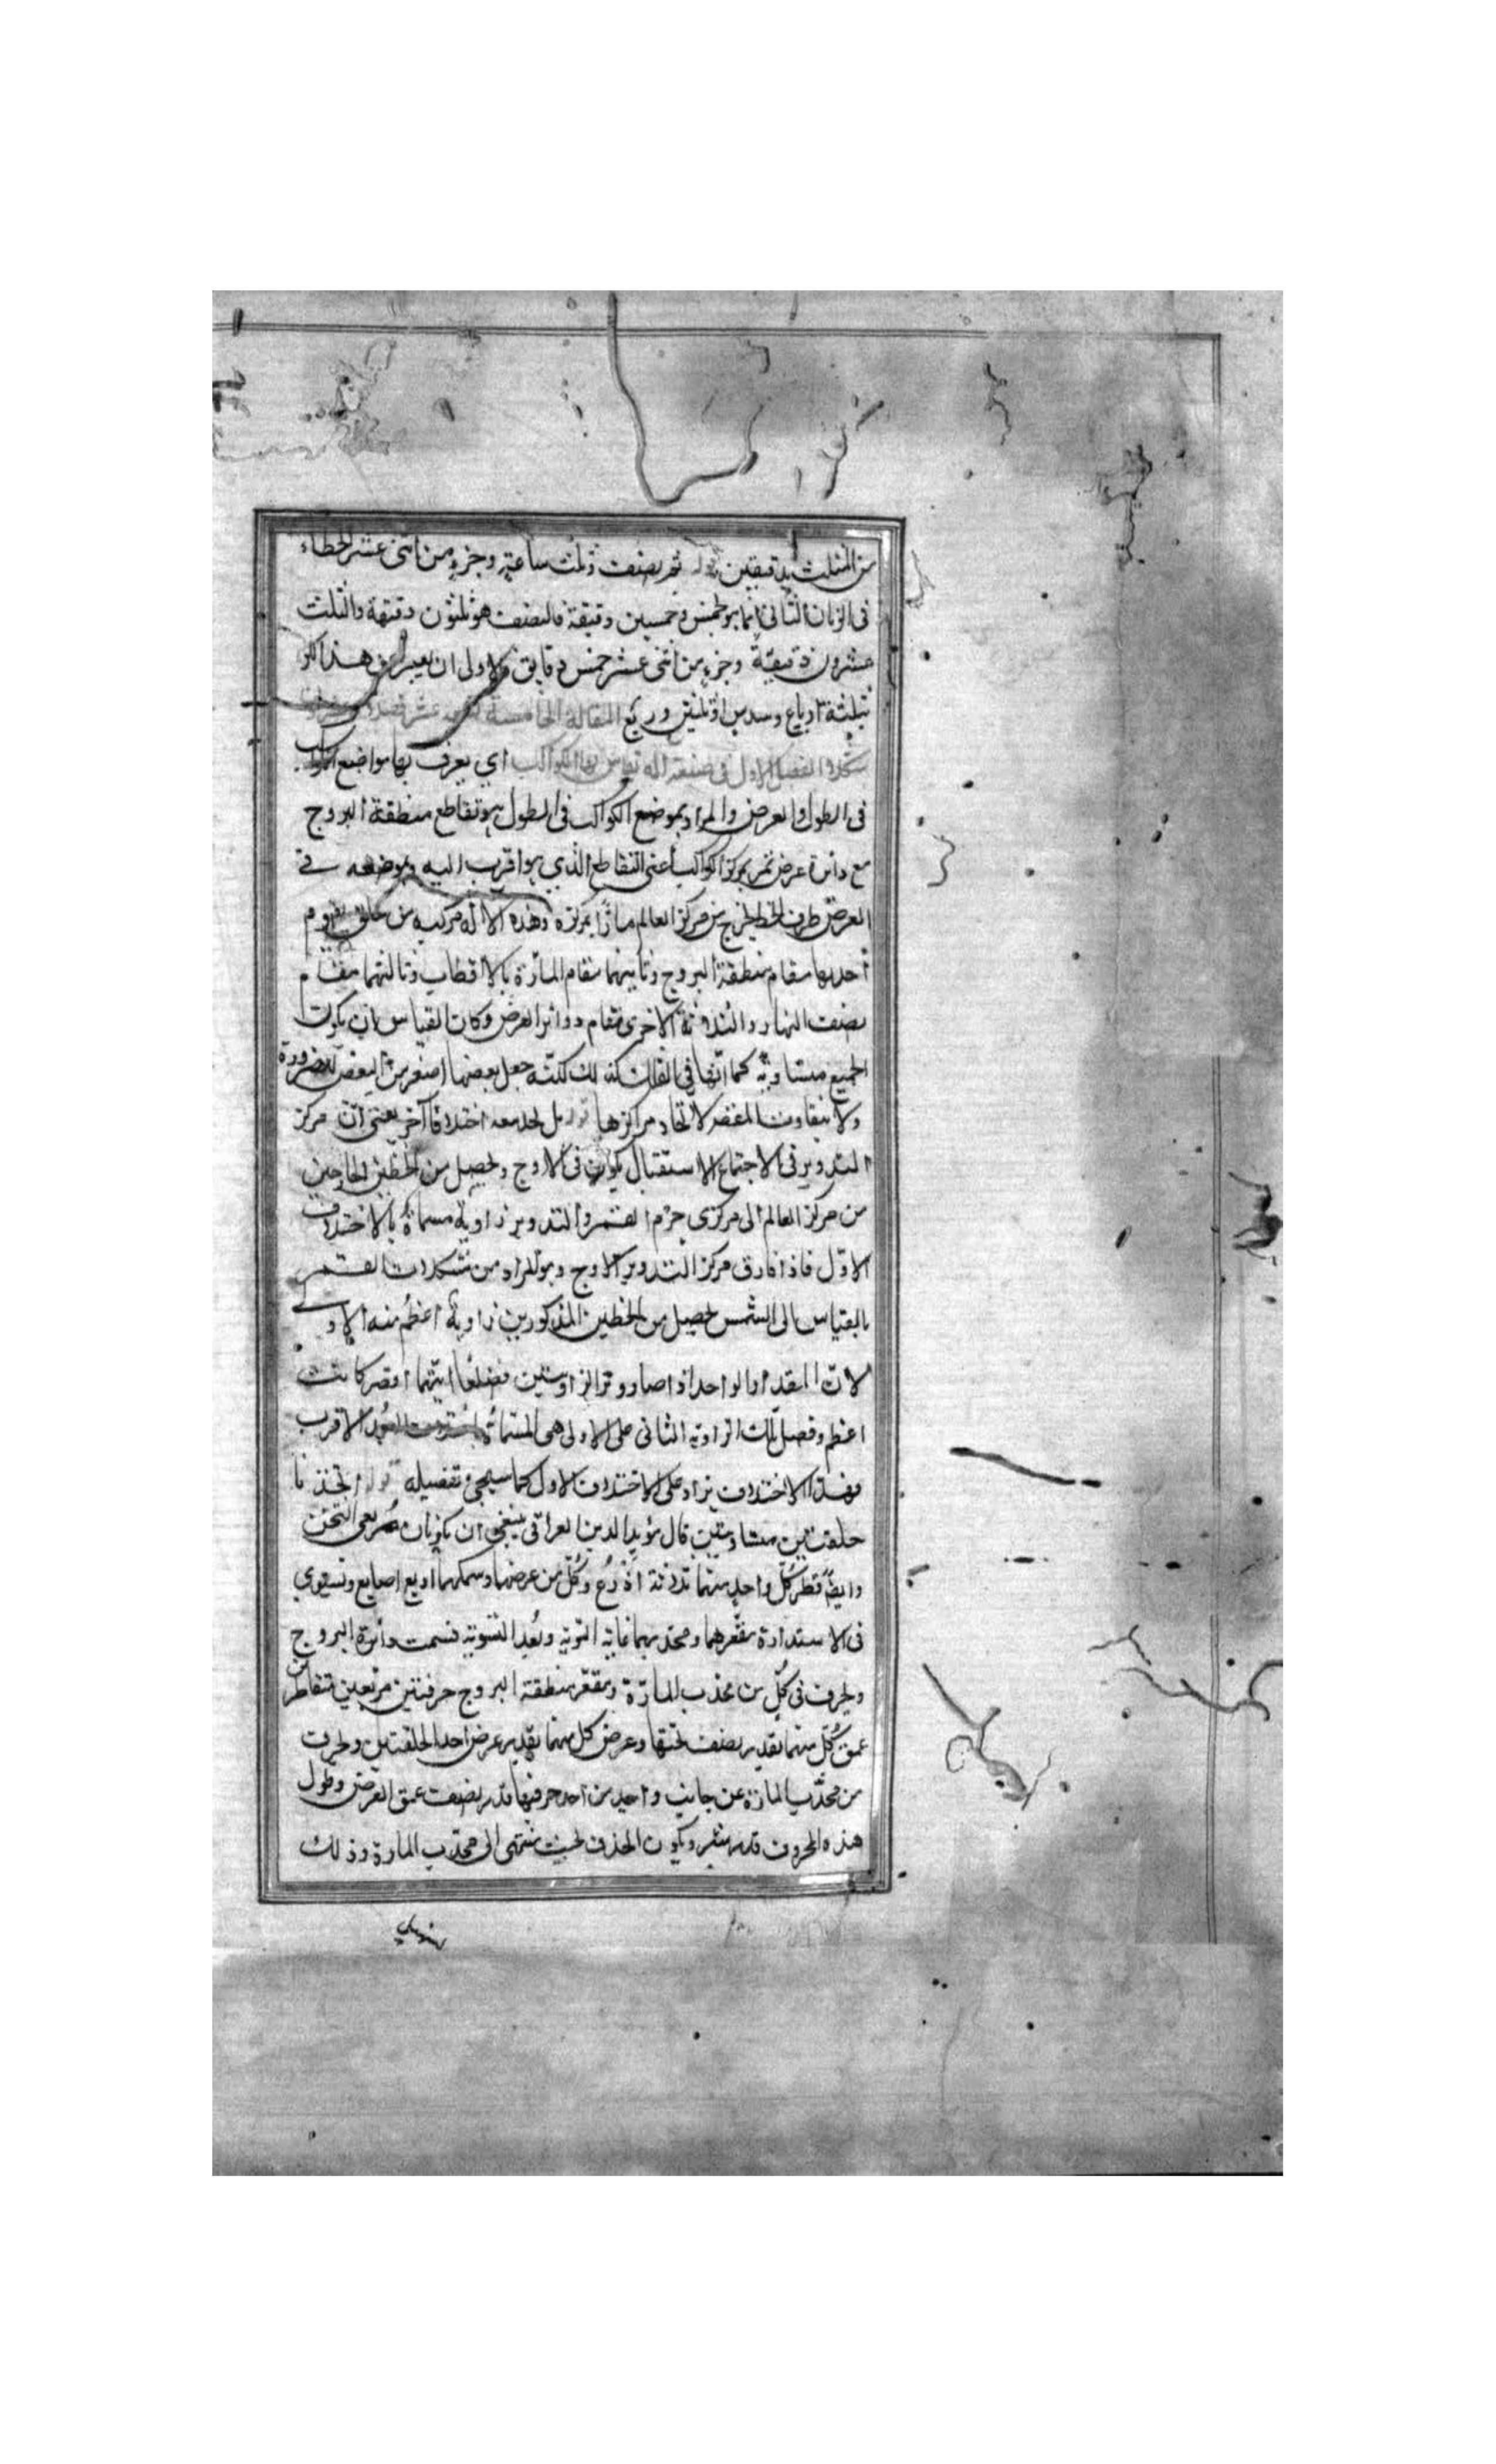 من الثلث بدقيقتين قوله ثم بنصف وثلث ساعة وجزء من اثنى عشر الخطاء
فى الزمان الثانى انما هو بخمس وخمسين دقيقة فالنصف هو ثلثون دقيقة والثلث
عشرون دقيقة وجزء من اثنى عشر خمس دقايق فالاولى ان يعبر عن هذا الكسر
بثلثة ارباع وسدس او ثلثين وربع المقالة الخامسة تسعة عشر فصلا
شكلا الفصل الاول فى صنعة آلة تقاس بها الكواكب اي يعرف بها مواضع الكواكب
فى الطول والعرض والمراد بموضع الكواكب فى الطول هو تقاطع منطقة البروج
مع دائرة عرض تمر بمركز الكواكب اعنى التقاطع الذي هو اقرب اليه وبموضعه فى
العرض طرف الخط الخارج من مركز العالم مارّا بمركزه وهذه الالة مركبة من حلق يقوم
احديها مقام منطقة البروج وثانيتهما مقام المارّة بالاقطاب وثالثتهما مقام
نصف النهار والثلاثة الاخرى مقام دوائر العرض وكان القياس ان يكون
الجميع متساوية كما انها فى الفلك كذلك لكنه جعل بعضها اصغر من البعض للضرورة
ولا يتفاوت الغرض لاتحاد مراكزها قوله بل نجد معه اختلافا آخر يعنى ان مركز
التدوير فى الاجتماع والاستقبال يكون فى الاوج ويحصل من الخطين الخارجين
من مركز العالم الى مركزى جرم القمر والتدوير زاوية مسماة بالاختلاف
الاول فاذا فارق مركز التدوير الاوج وهو المراد من تشكلات القمر
بالقياس الى الشمس يحصل من الخطين المذكورين زاوية اعظم من الاولى
لان المقدار الواحد اذا صار وتر الزاويتين فضلعا ايتهما اقصر كانت
اعظم وفضل تلك الزاوية الثانى على الاولى هى المسماة باختلاف البعد الاقرب
وهذا الاختلاف يزاد على الاختلاف الاول كما سيجئ تفصيله قوله اتخذنا
حلقتين متساويتين قال مؤيد الدين العراقى ينبغى ان يكونان مربعى الثخن
وايضا قطر كل واحد منهما ثلاثة اذرع وكل من عرضهما وسمكهما اربع اصابع وتسوي
فى الاستدارة مقعرهما ومحدبهما غاية التوية وبعد التسوية قسمت دائرة البروج
ويحرف فى كل من محدب المارّة ومقعر منطقة البروج حرفتين مربعين متقاطرين
عمق كل منهما بقدر نصف ثخنها وعرض كل منهما بقدر عرض احد الحلقتين ويحرف
من محدب المارة عن جانب واحد من احد حرفيها قدر نصف عمق العرض وطول
هذه الحروف قدر شبر ويكون الحذف بحيث ينتهى الى محدب المارة وذلك